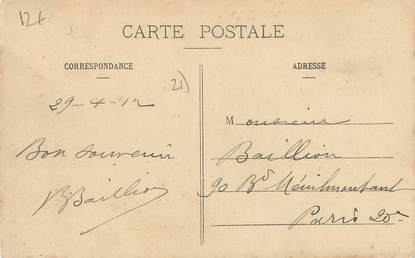 12t
CARTE POSTALE
CORRESPONDANCE
ADRESSE
21)
29-4-12
Monsieur
Bon souvenir
Baillion
Baillion
90 Bd Ménilmontant
Paris 20e